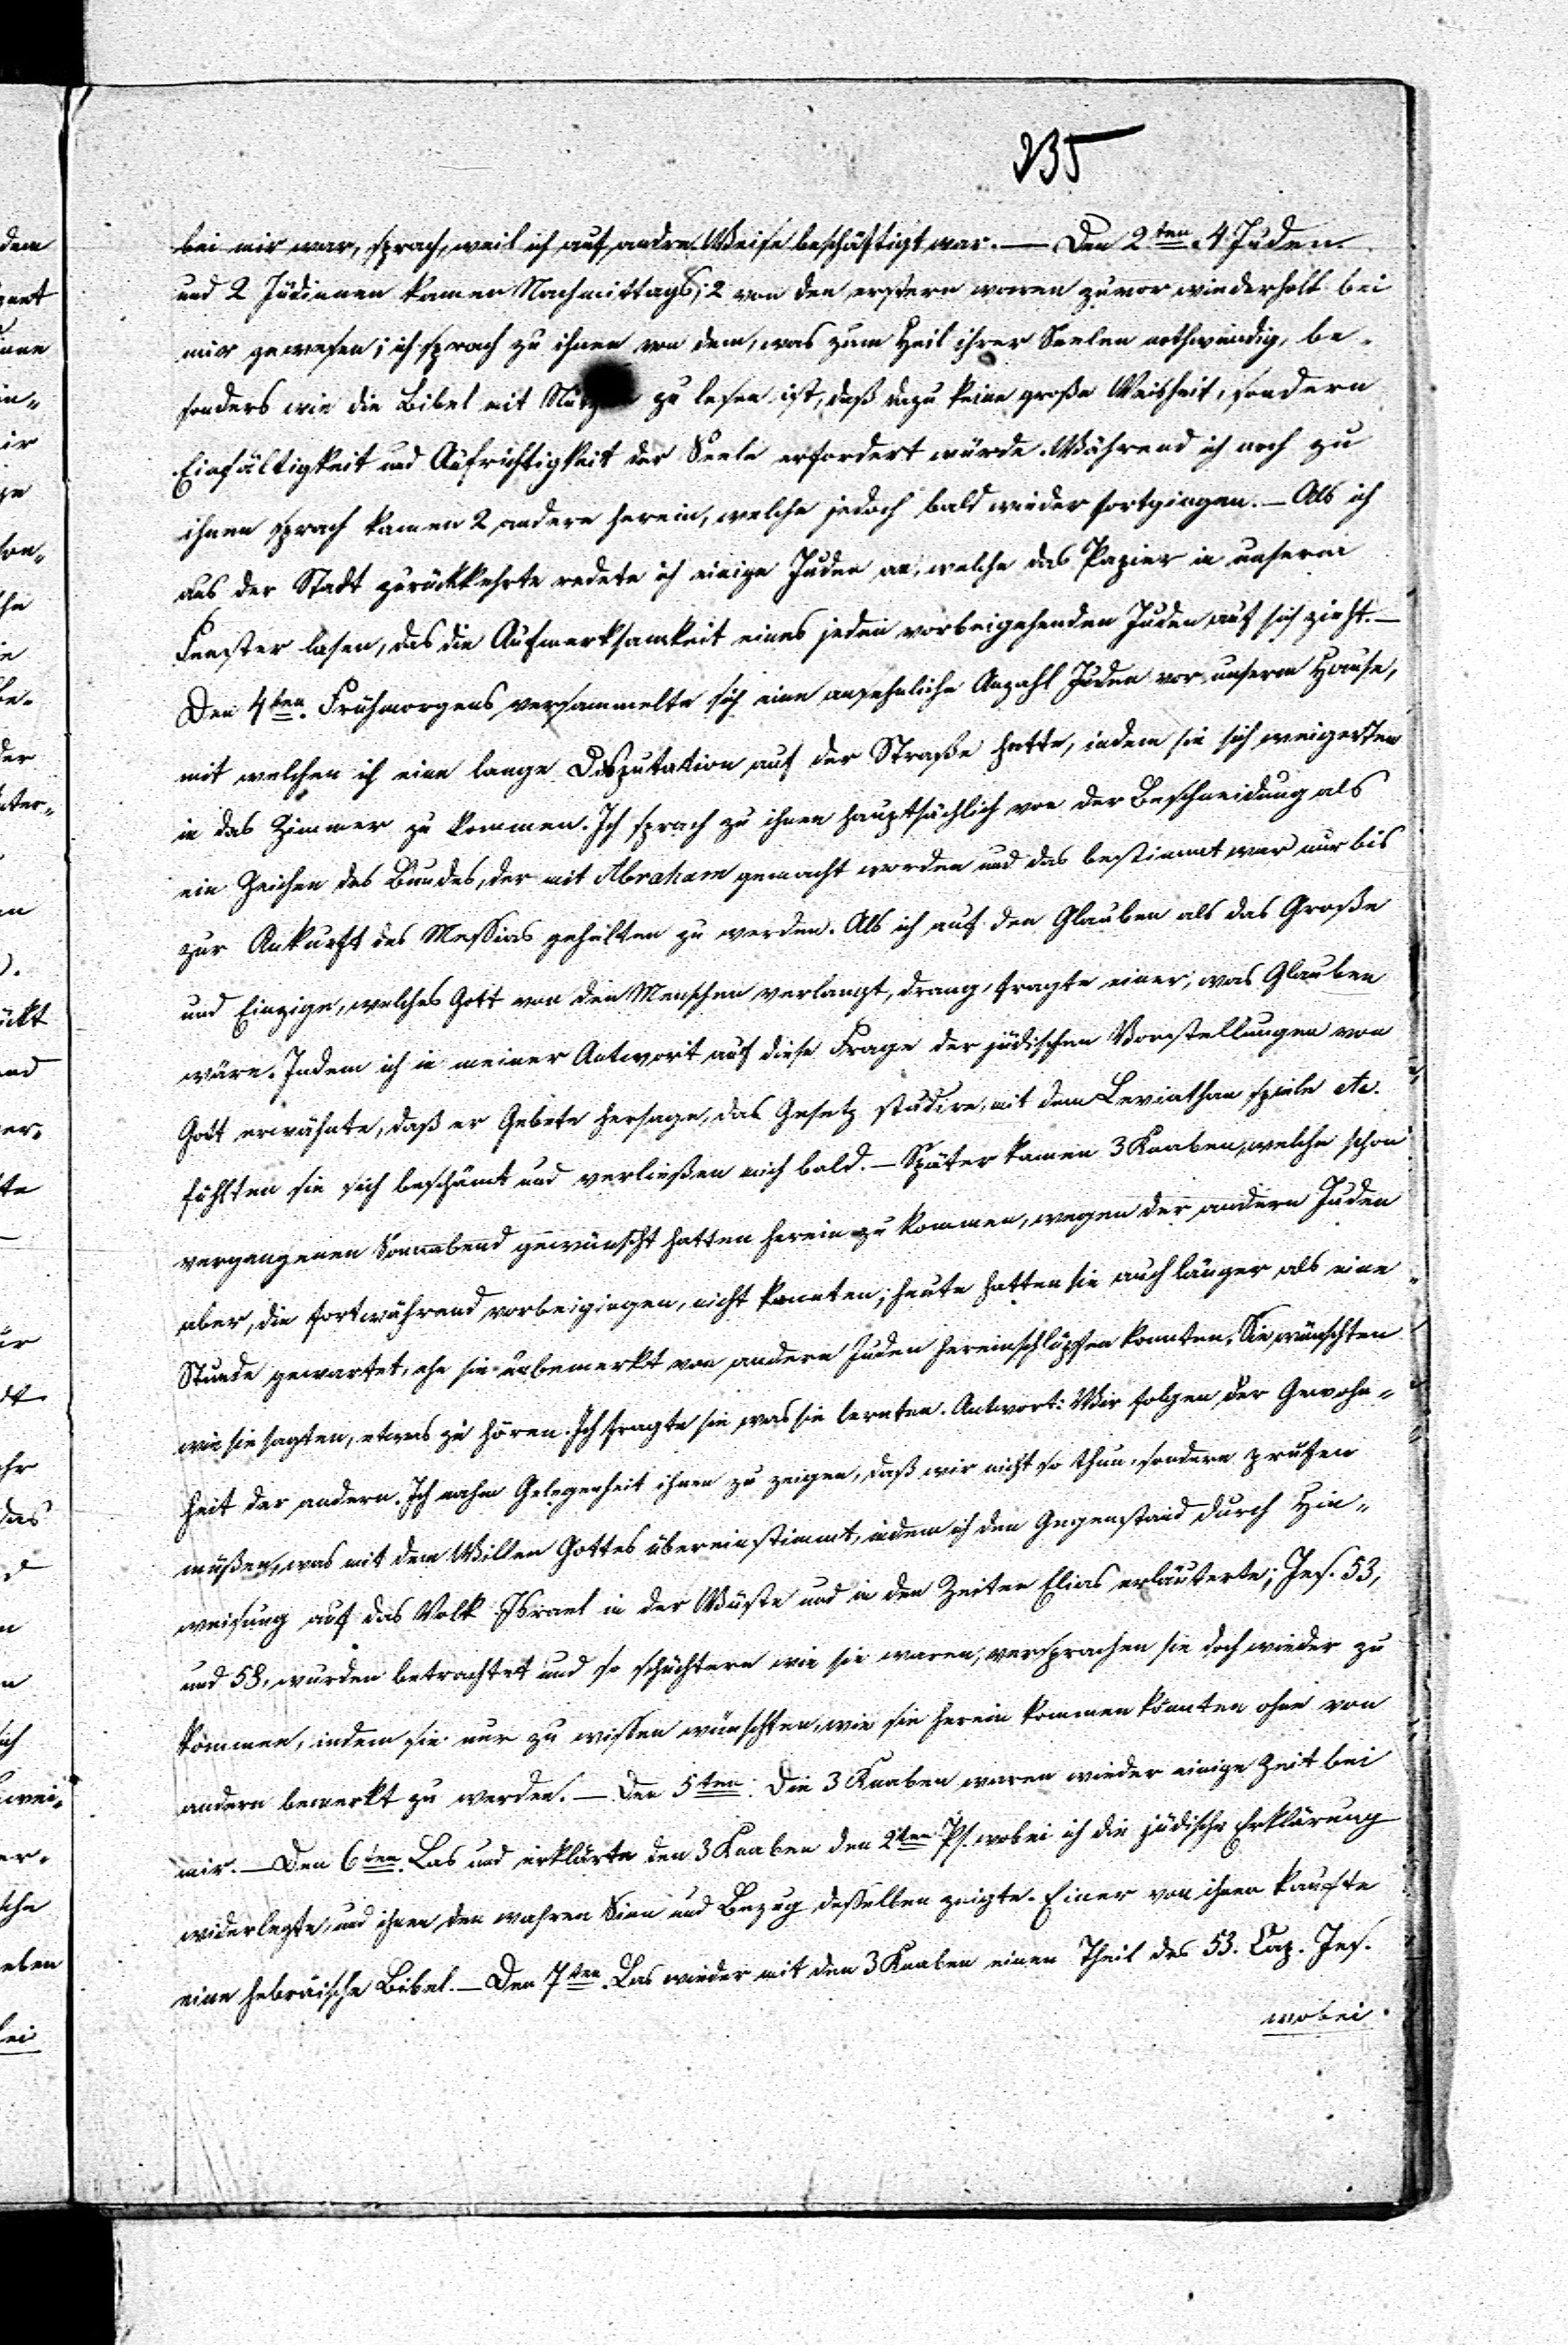 235
bei mir war, sprach, weil ich auf andre Weise beschäftigt war. — Den 2ten 4 Juden
und 2 Jüdinnen kamen Nachmittags; 2 von den erstern waren zuvor wiederholt bei
mir gewesen; ich sprach zu ihnen von dem, was zum Heil ihrer Seelen nothwendig, be-
sonders wie die Bibel mit zu lesen ist, daß dazu keine große Weisheit, sondern
Einfältigkeit und Aufrichtigkeit der Seele erfordert würde. Während ich noch zu
ihnen sprach kamen 2 andere herein, welche jedoch bald wieder fortgingen. — Als ich
aus der Stadt zurückkehrte redete ich einige Juden an, welche das Papier in unserm
Fenster lasen, das die Aufmerksamkeit eines jeden vorbeigehenden Juden auf sich zieht. —
Den 4ten. Frühmorgens versammelte sich eine ansehnliche Anzahl Juden vor unserm Hause,
mit welchen ich eine lange Disputation auf der Straße hatte, indem sie sich weigerten
in das Zimmer zu kommen. Ich sprach zu ihnen hauptsächlich von der Beschneidung als
ein Zeichen des Bundes, der mit Abraham gemacht worden und das bestimmt war nur bis
zur Ankunft des Messias gehalten zu werden. Als ich auf den Glauben als das Große
und Einzige, welches Gott von den Menschen verlangt, drang, fragte einer, was Glauben
wäre. Indem ich in meiner Antwort auf diese Frage der jüdischen Vorstellungen von
Gott erwähnte, daß er Gebete hersage, das Gesetz studire, mit dem Leviathan spiele etc.
fühlten sie sich beschämt und verließen mich bald. — Später kamen 3 Knaben, welche schon
vergangenen Sonnabend gewünscht hatten herein zu kommen, wegen der andern Juden
aber, die fortwährend vorbeigingen, nicht konnten; heute hatten sie auch länger als eine
Stunde gewartet, ehe sie unbemerkt von andern Juden hereinschlüpfen konnten. Sie wünschten
wie sie sagten, etwas zu hören. Ich fragte sie was sie lernten. Antwort: Wir folgen der Gewohn-
heit der andern. Ich nahm Gelegenheit ihnen zu zeigen, daß wir nicht so thun, sondern prüfen
müßen, was mit dem Willen Gottes übereinstimmt, indem ich den Gegenstand durch Hin-
weisung auf das Volk Israel in der Wüste und in den Zeiten Elias erläuterte; Jes. 53,
und 58, wurden betrachtet und so schüchtern wie sie waren, versprachen sie doch wieder zu
kommen, indem sie nur zu wissen wünschten, wie sie herein kommen könnten ohne von
andern bemerkt zu werden. — Den 5ten. Die 3 Knaben waren wieder einige Zeit bei
mir. — Den 6ten. Las und erklärte den 3 Knaben den 2ten Ps. wobei ich die jüdische Erklärung
widerlegte, und ihnen den wahren Sinn und Bezug desselben zeigte. Einer von ihnen kaufte
eine hebräische Bibel. — Den 7ten. Las wieder mit den 3 Knaben einen Theil des 53. Cap. Jes.
wobei